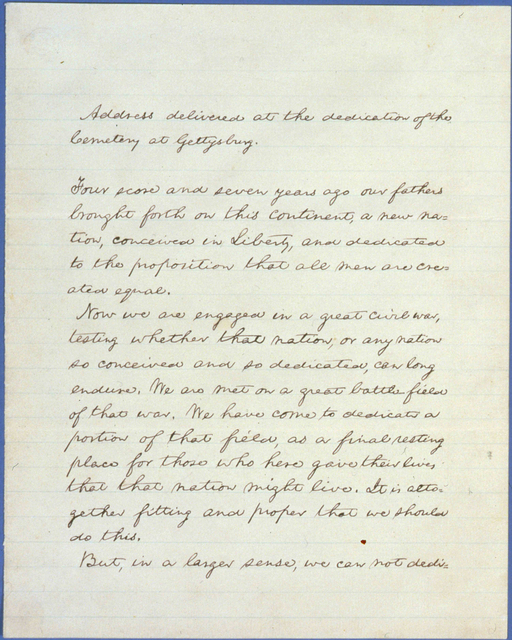 Address delivered at the dedication of the
Cemetery at Gettysburg.
Four score and seven years ago our fathers
brought forth on this continent, a new na-
tion, conceived in Liberty, and dedicated
to the proposition that all men are cre-
ated equal.
Now we are engaged in a great civil war,
testing whether that nation, or any nation
so conceived and so dedicated, can long
endure. We are met on a great battle-field
of that war. We have come to dedicate a
portion of that field, as a final resting
place for those who here gave their lives
that that nation might live. It is alto-
gether fitting and proper that we should
do this.
But, in a larger sense, we can not dedi-